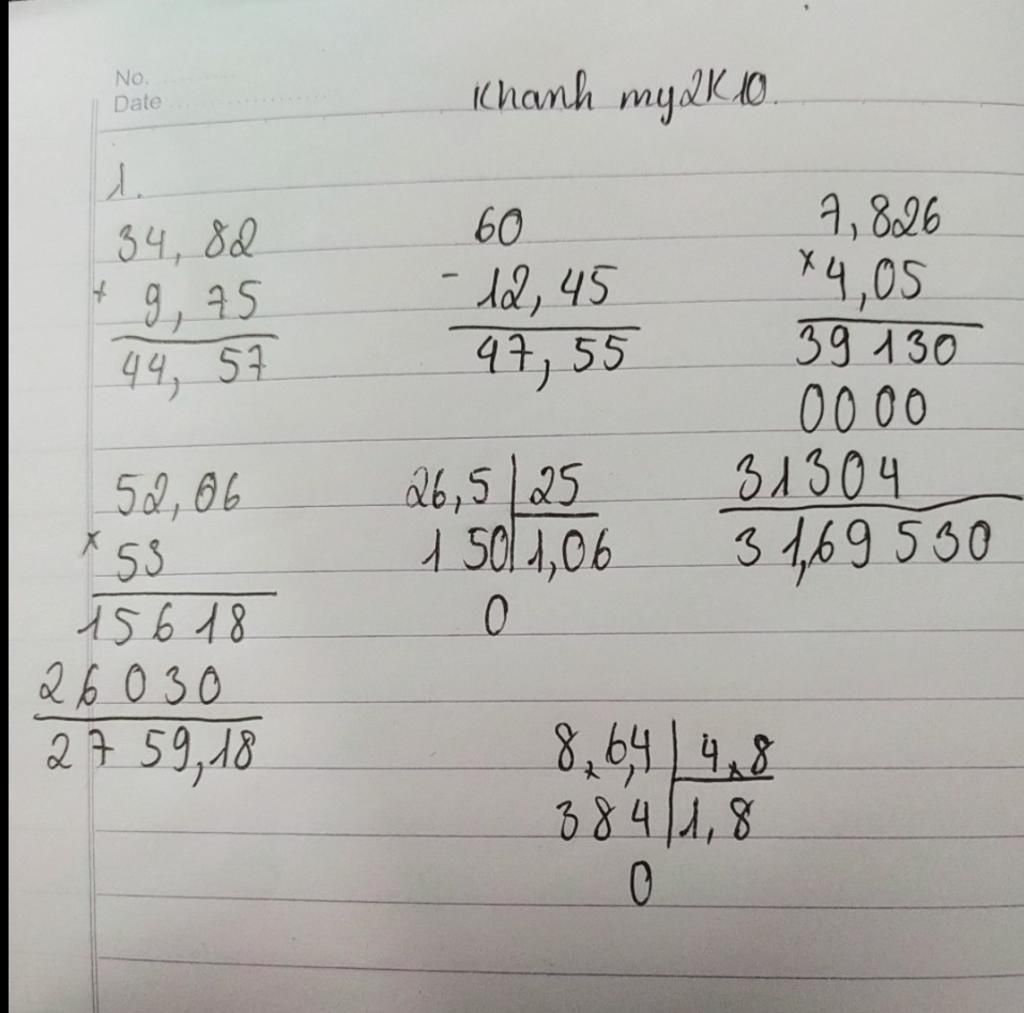 No.
Date
Khanh my2K10.
1.
34,82
+ 9,75
44,57
60
- 12,45
47,55
7,826
x 4,05
39130
0000
31304
31,69530
52,06
x 53
15618
26030
2759,18
26,5 | 25
150 | 1,06
0
8,6,4 | 4,8
384 | 1,8
0